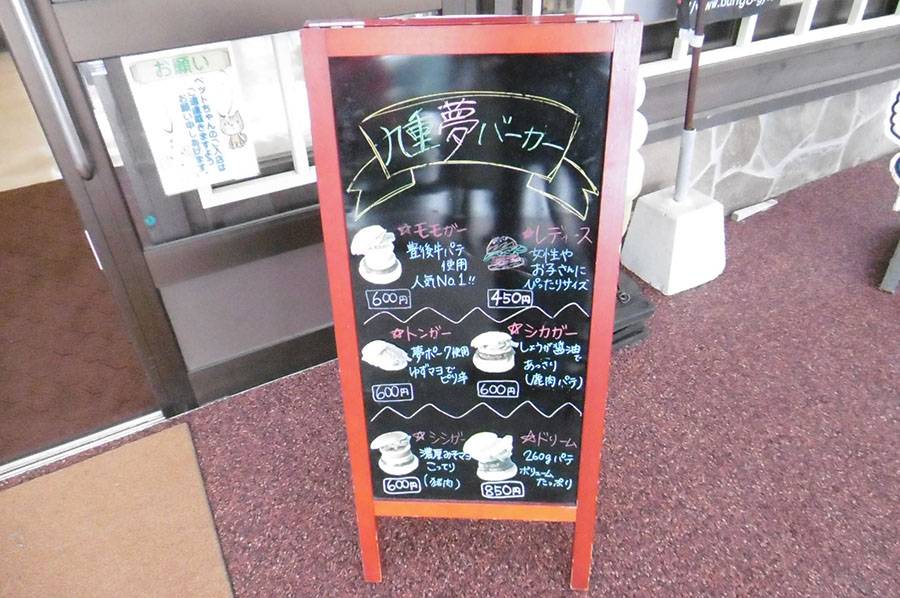 お願い
ペットちゃんのご入店は
ご遠慮頂きますよう
お願い申しあげます。
九重夢バーガー
☆モモガー
豊後牛パテ
使用
人気No.1!!
600円
☆レディース
女性や
お子さんに
ぴったりサイズ
450円
☆トンガー
夢ポーク使用
ゆずマヨで
ピリ辛
600円
☆シカガー
しょうが醤油で
あっさり
(鹿肉パテ)
600円
☆シシガー
濃厚みそマヨ
こってり
(猪肉)
600円
☆ドリーム
260gパテ
ボリューム
たっぷり
850円